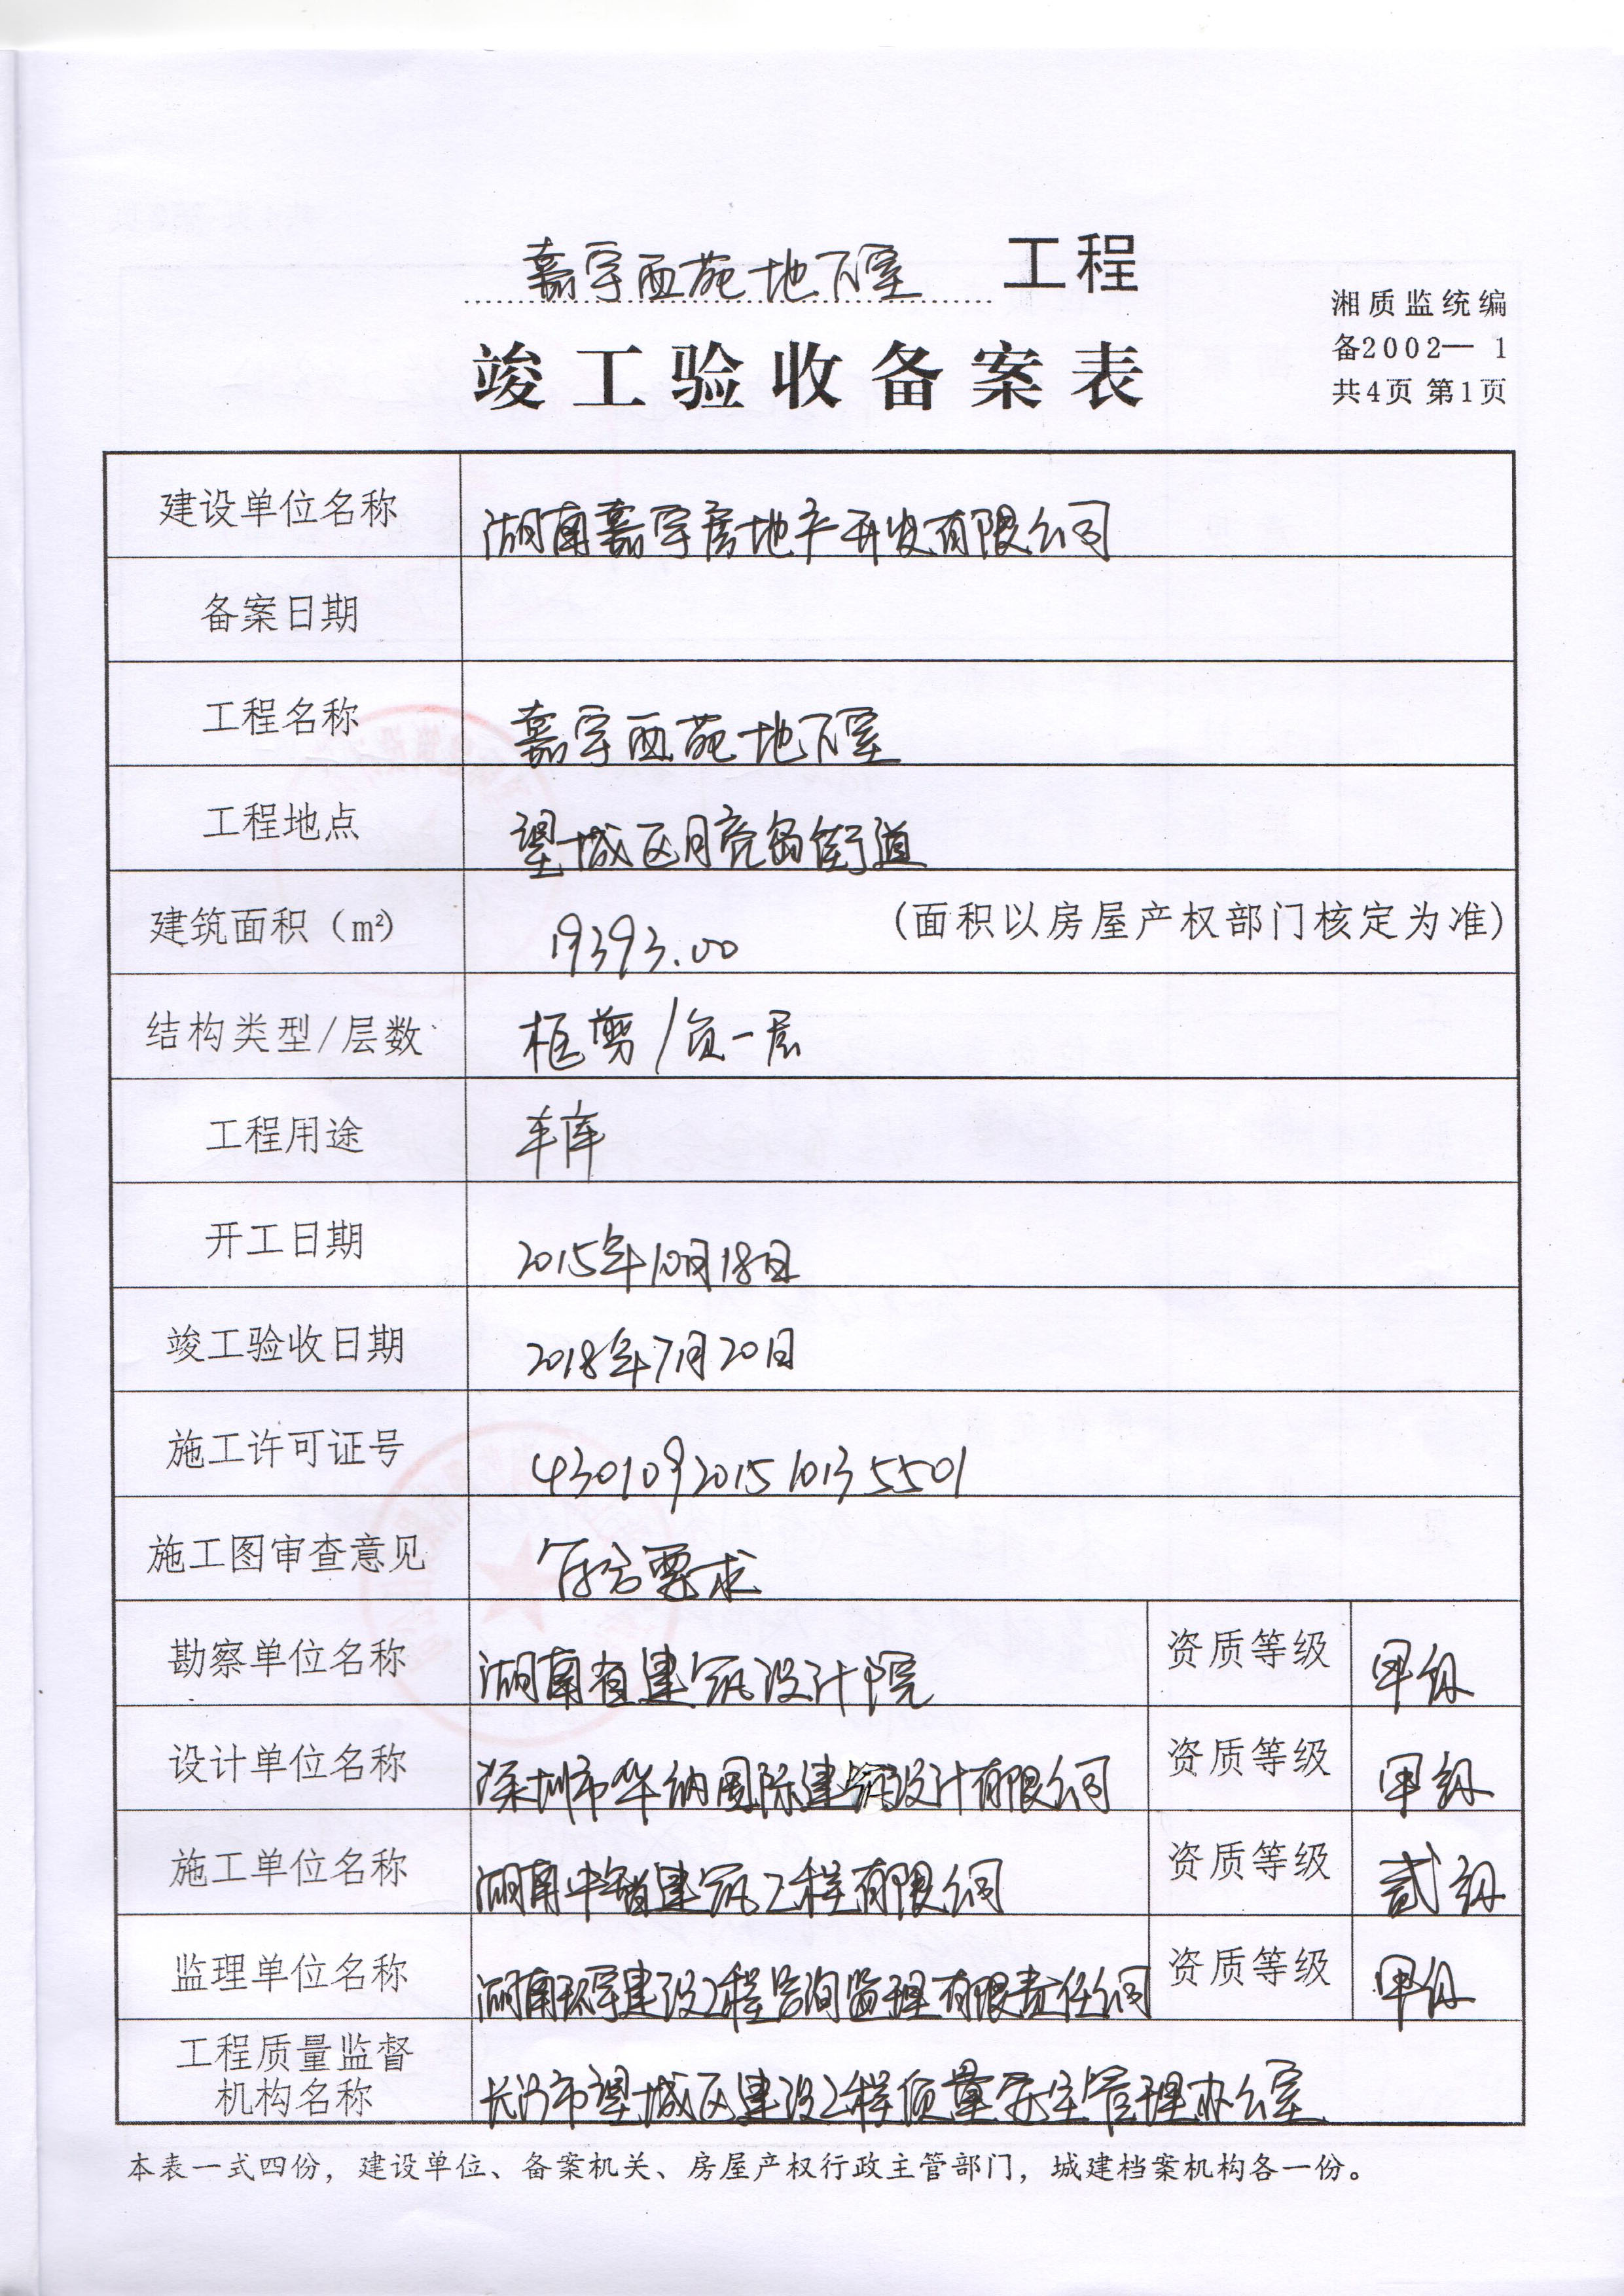 嘉宇西苑地下室 工程
湘质监统编
备2002— 1
共4页 第1页
竣工验收备案表
建设单位名称 湖南嘉宇房地产开发有限公司
备案日期
工程名称 嘉宇西苑地下室
工程地点 望城区月亮岛街道
建筑面积（m²） 19393.00 (面积以房屋产权部门核定为准)
结构类型/层数 框剪/负一层
工程用途 车库
开工日期 2015年10月18日
竣工验收日期 2018年7月20日
施工许可证号 430109201510135501
施工图审查意见 符合要求
勘察单位名称 湖南省建筑设计院 资质等级 甲级
设计单位名称 深圳市华纳国际建筑设计有限公司 资质等级 甲级
施工单位名称 湖南中智建筑工程有限公司 资质等级 贰级
监理单位名称 湖南环宇建设工程咨询监理有限责任公司 资质等级 甲级
工程质量监督
机构名称 长沙市望城区建设工程质量安全管理办公室
本表一式四份，建设单位、备案机关、房屋产权行政主管部门，城建档案机构各一份。